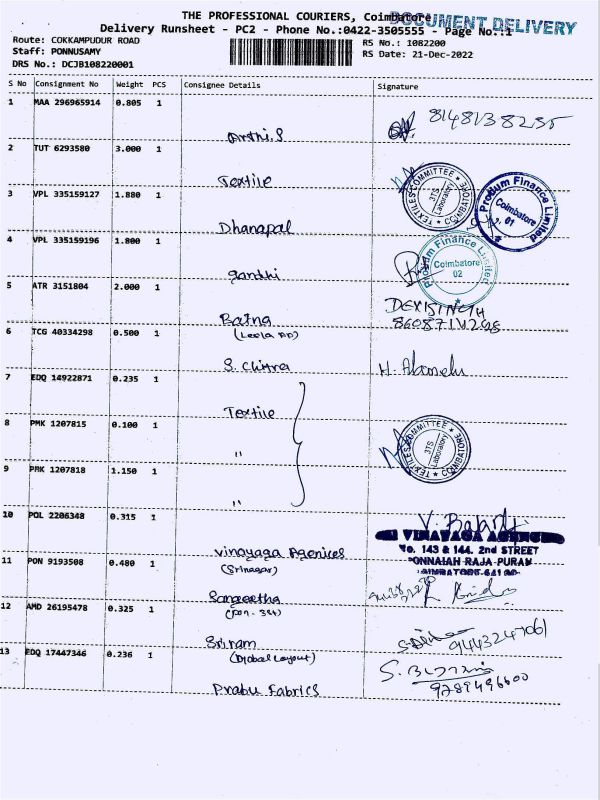 THE PROFESSIONAL COURIERS, Coimbatore
DOCUMENT DELIVERY
Delivery Runsheet - PC2 - Phone No.:0422-3505555 - Page No.:1
Route: COKKAMPUDUR ROAD
RS No.: 1082200
Staff: PONNUSAMY
RS Date: 21-Dec-2022
DRS No.: DCJB108220001
S No Consignment No Weight PCS Consignee Details Signature
1 MAA 296965914 0.805 1
Arthi.S 8148138255
2 TUT 6293580 3.000 1
Textile
TEXTILES COMMITTEE COIMBATORE
Laboratory
Prodium Finance Limited
Coimbatore
01
3 VPL 335159127 1.880 1
Dhanapal
4 VPL 335159196 1.800 1
gandhi
Prodium Finance Limited
Coimbatore
02
5 ATR 3151804 2.000 1
Batna
(Leela
6 TCG 40334298 0.500 1
S. Chitra
7 EDQ 14922871 0.235 1
Textile
8 PMK 1207815 0.100 1
"
TEXTILES COMMITTEE COIMBATORE
Laboratory
9 PMK 1207818 1.150 1
"
10 POL 2206348 0.315 1
Vinayaga Agenices
(Srinagar)
VINAYAGA AGENCIES
No. 143 & 144. 2nd STREET
PONNAIAH RAJA PURAM
11 PON 9193508 0.480 1
Sangeetha
12 AMD 26195478 0.325 1
Sriram
(Global Layout)
9443247061
13 EDQ 17447346 0.236 1
Prabu Fabrics
9789496600